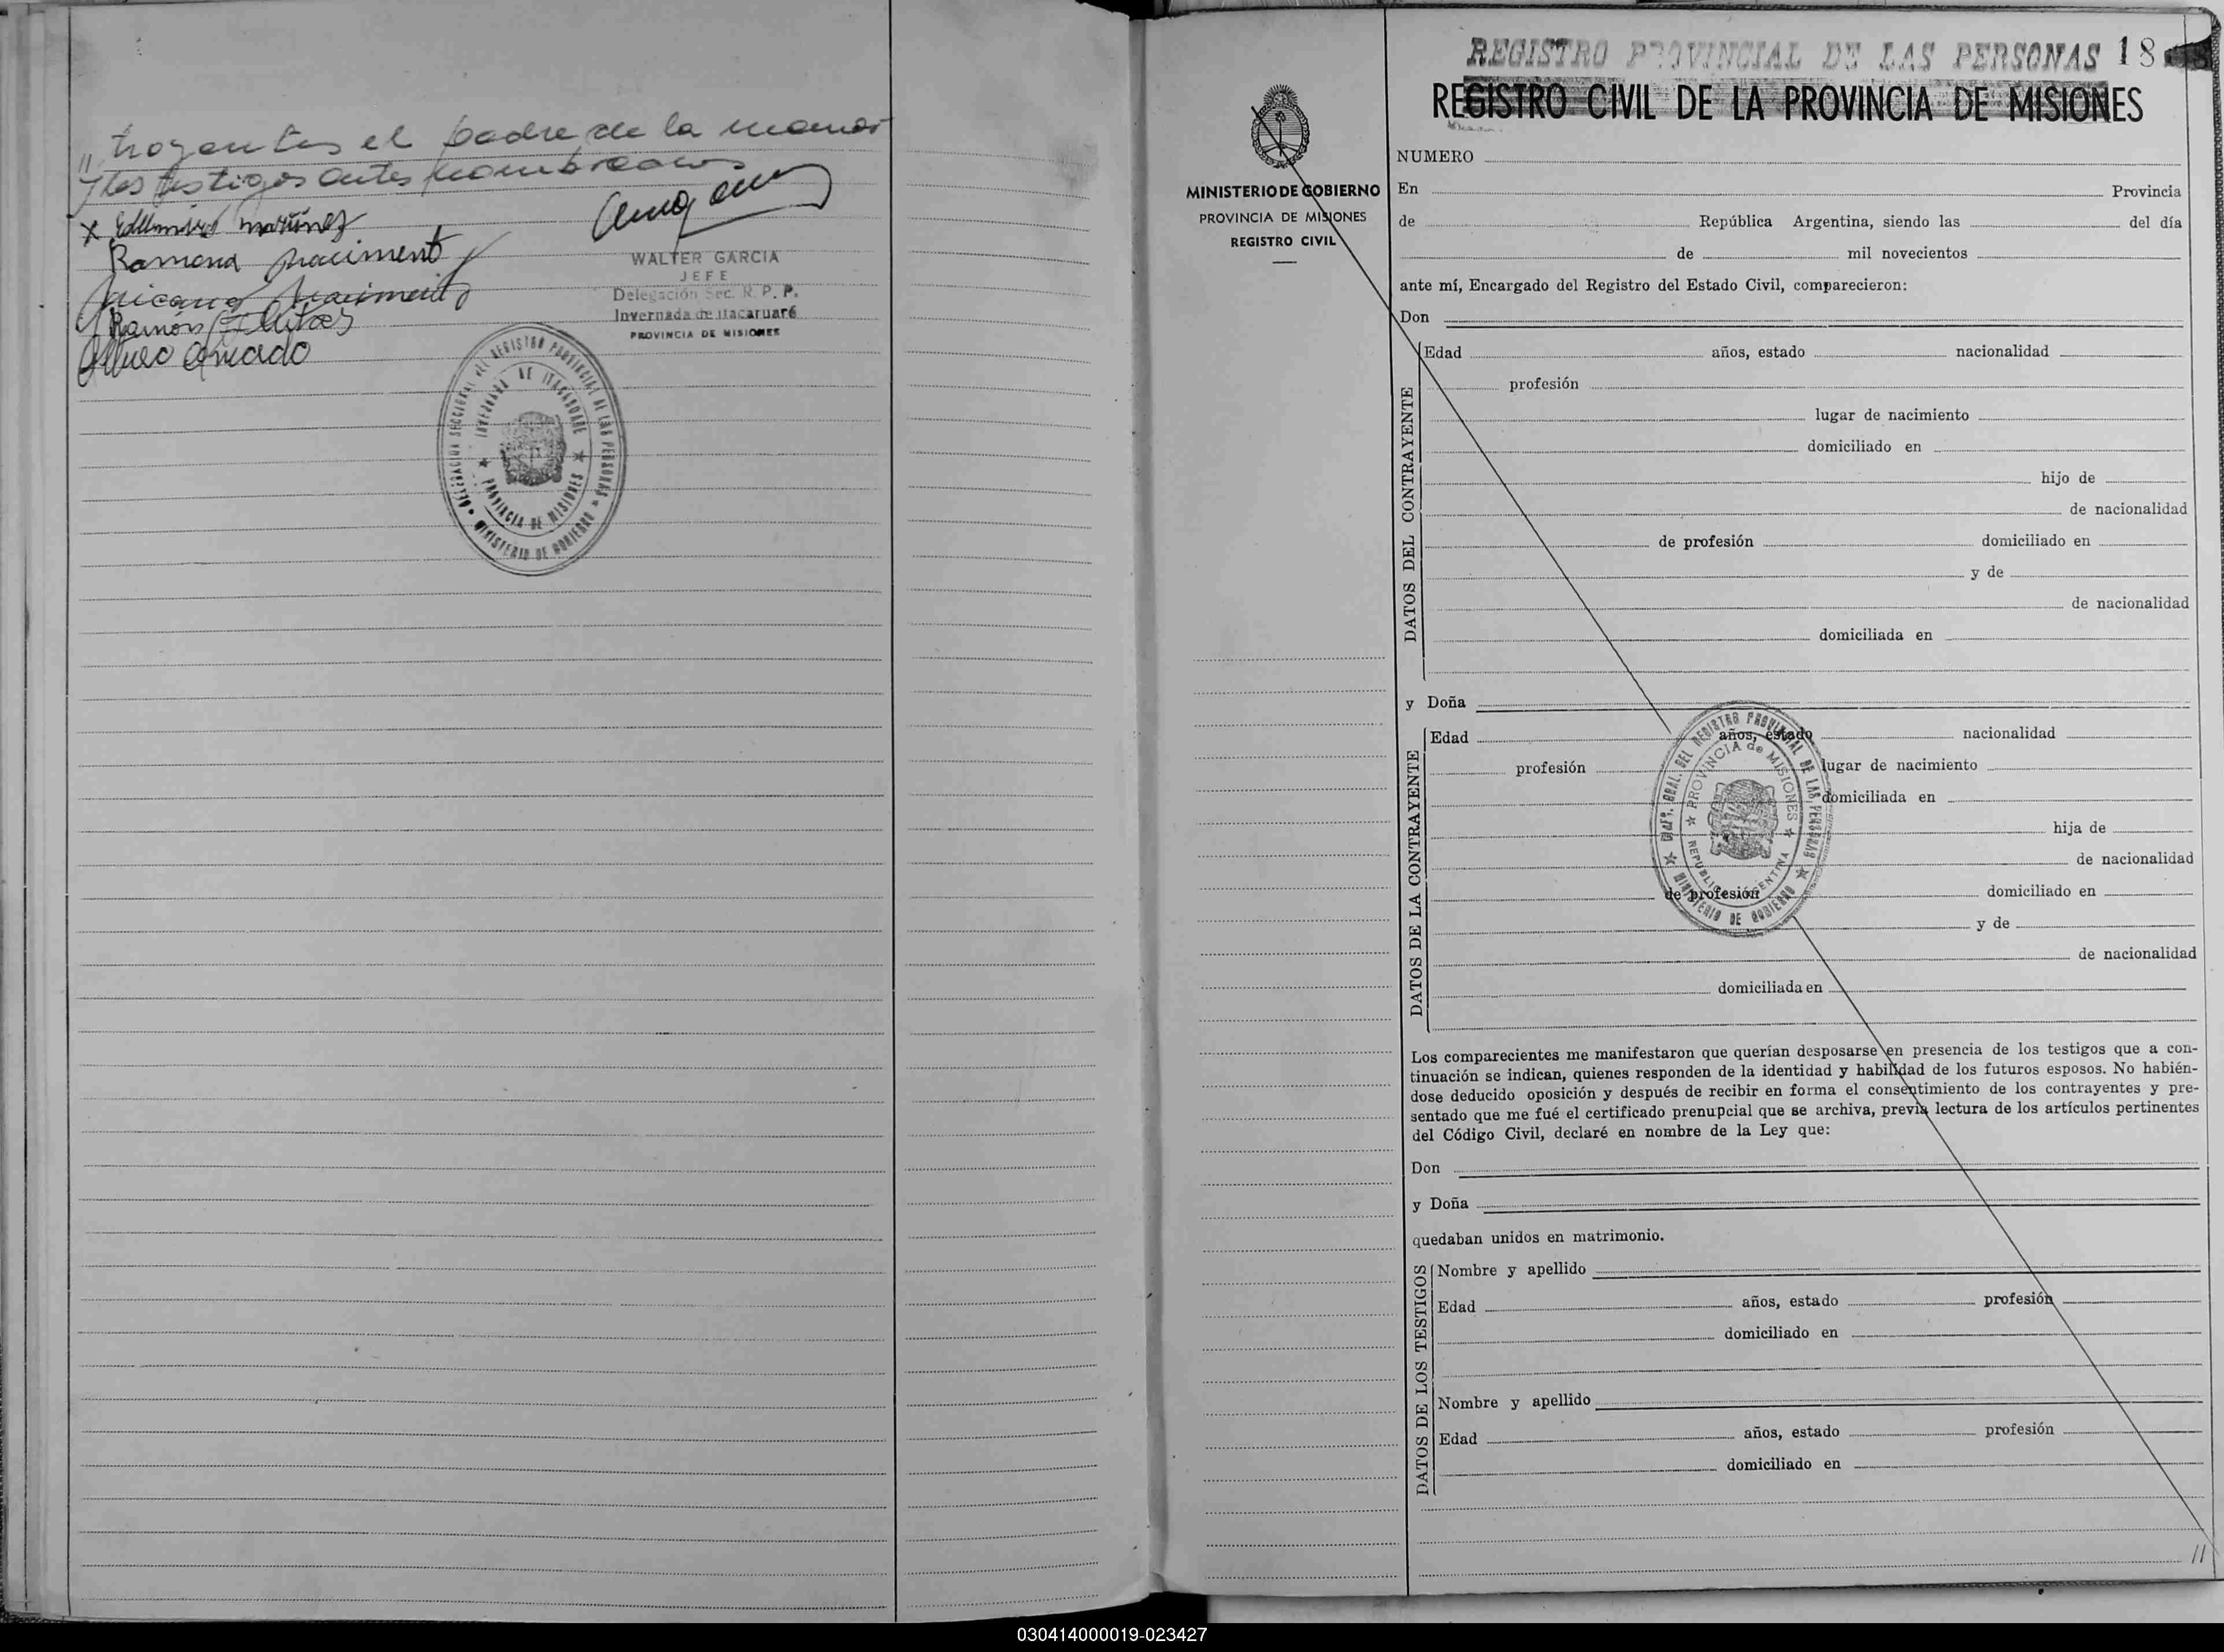 "trayentes el padre de la menor
y los testigos antes nombrados
x martinez
Ramona
WALTER GARCIA
JEFE
Delegación Sec. R. P. P.
Invernada de Itacaruaré
PROVINCIA DE MISIONES
Ramón
DELEGACION SECCIONAL DEL REGISTRO PROVINCIAL DE LAS PERSONAS * MINISTERIO DE GOBIERNO *
INVERNADA DE ITACARUARE ★ PROVINCIA DE MISIONES ★
REGISTRO PROVINCIAL DE LAS PERSONAS 18
REGISTRO CIVIL DE LA PROVINCIA DE MISIONES
MINISTERIO DE GOBIERNO
PROVINCIA DE MISIONES
REGISTRO CIVIL
NUMERO
En Provincia
de República Argentina, siendo las del día
de mil novecientos
ante mí, Encargado del Registro del Estado Civil, comparecieron:
Don
DATOS DEL CONTRAYENTE
Edad años, estado nacionalidad
profesión
lugar de nacimiento
domiciliado en
hijo de
de nacionalidad
de profesión domiciliado en
y de
de nacionalidad
domiciliada en
y Doña
DATOS DE LA CONTRAYENTE
Edad años, estado nacionalidad
profesión lugar de nacimiento
domiciliada en
hija de
de nacionalidad
de profesión domiciliado en
y de
de nacionalidad
domiciliada en
DEL REGISTRO PROVINCIAL DE LAS PERSONAS ★ MINISTERIO DE GOBIERNO ★
★ PROVINCIA de MISIONES ★ REPUBLICA ARGENTINA
Los comparecientes me manifestaron que querían desposarse en presencia de los testigos que a con-
tinuación se indican, quienes responden de la identidad y habilidad de los futuros esposos. No habién-
dose deducido oposición y después de recibir en forma el consentimiento de los contrayentes y pre-
sentado que me fué el certificado prenupcial que se archiva, previa lectura de los artículos pertinentes
del Código Civil, declaré en nombre de la Ley que:
Don
y Doña
quedaban unidos en matrimonio.
DATOS DE LOS TESTIGOS
Nombre y apellido
Edad años, estado profesión
domiciliado en
Nombre y apellido
Edad años, estado profesión
domiciliado en
//
030414000019-023427